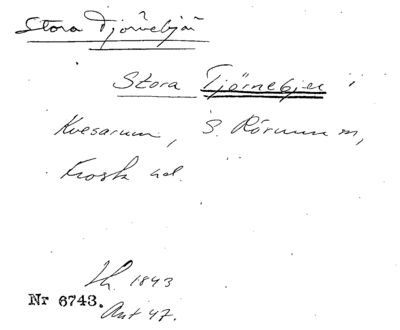 Stora Tjörnebjär
Stora Tjörnebjer i
Kvesarum, S. Rörum sn,
Frosta hd.
Lh. 1843
Nr 6743.
Ant 47.